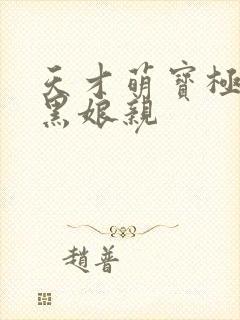 天才萌寶極
黑娘親
趙普